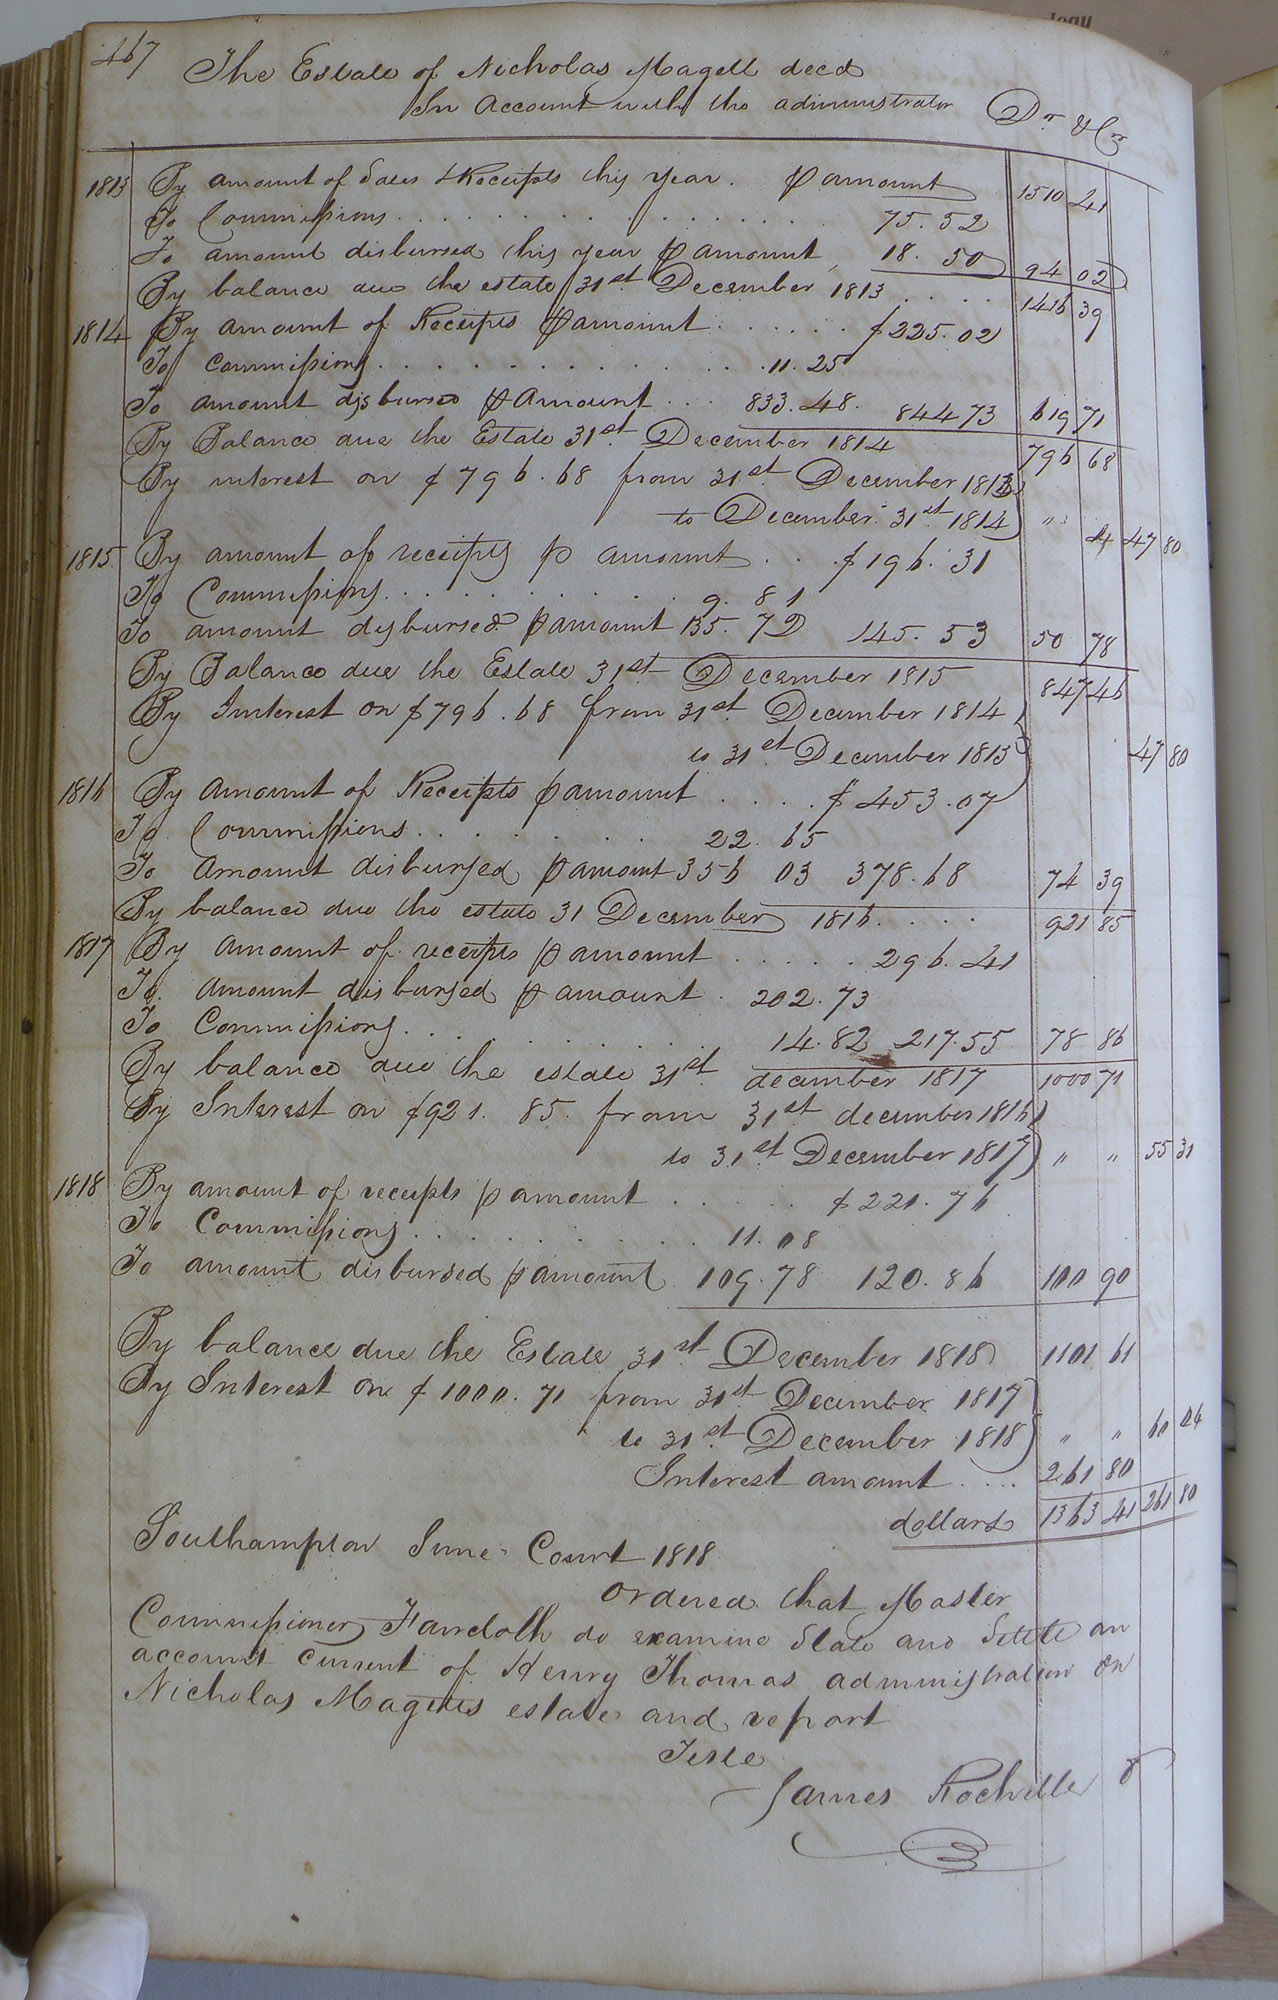 467
The Estate of Nicholas Magett decd
In Account with the administrator Dr & Cr
1813 By amount of Sales & Receipts this year. ⅌ amount 1510 41
To Commissions . . . . . 75.52
To amount disbursed this year ⅌ amount 18.50 94 02
By balance due the estate 31st December 1813 . . . . 1416 39
1814 By amount of Receipts ⅌ amount . . . . . $225.02
To Commissions . . . . . 11.25
To amount disbursed ⅌ amount . . . 833.48. 844 73 619 71
By Balance due the Estate 31st December 1814 796 68
By interest on $796.68 from 31st December 1813
to December 31st 1814 " 4 47 80
1815 By amount of receipts ⅌ amount . . . $196.31
To Commissions . . . . . 9.81
To amount disbursed ⅌ amount 135.72 145.53 50 78
By Balance due the Estate 31st December 1815 847 46
By Interest on $796.68 from 31st December 1814
to 31st December 1815 47 80
1816 By Amount of Receipts ⅌ amount . . . . $453.07
To Commissions . . . . . 22.65
To Amount disbursed ⅌ amount 356 03 378.68 74 39
By balance due the estate 31 December 1816 . . . . 921 85
1817 By amount of receipts ⅌ amount . . . . . 296.41
To Amount disbursed ⅌ amount . 202.73
To Commissions . . . . . 14.82 217.55 78 86
By balance due the estate 31st december 1817 1000 71
By Interest on $921.85. from 31st december 1816
to 31st December 1817 " " 55 31
1818 By amount of receipts ⅌ amount . . . . . $221.76
To Commissions . . . . . 11.08
To amount disbursed ⅌ amount 109.78 120.86 100 90
By balance due the Estate 31st December 1818 1101 61
By Interest on $1000.71 from 31st December 1817
to 31st December 1818 " " 60 04
Interest amount . . . . 261 80
dollars 1363 41 261 80
Southampton June Court 1818
ordered that Master
Commissioner Fandolk do examine State and Settle an
account current of Henry Thomas administration on
Nicholas Magetts estate and report
Teste
James Rochelle